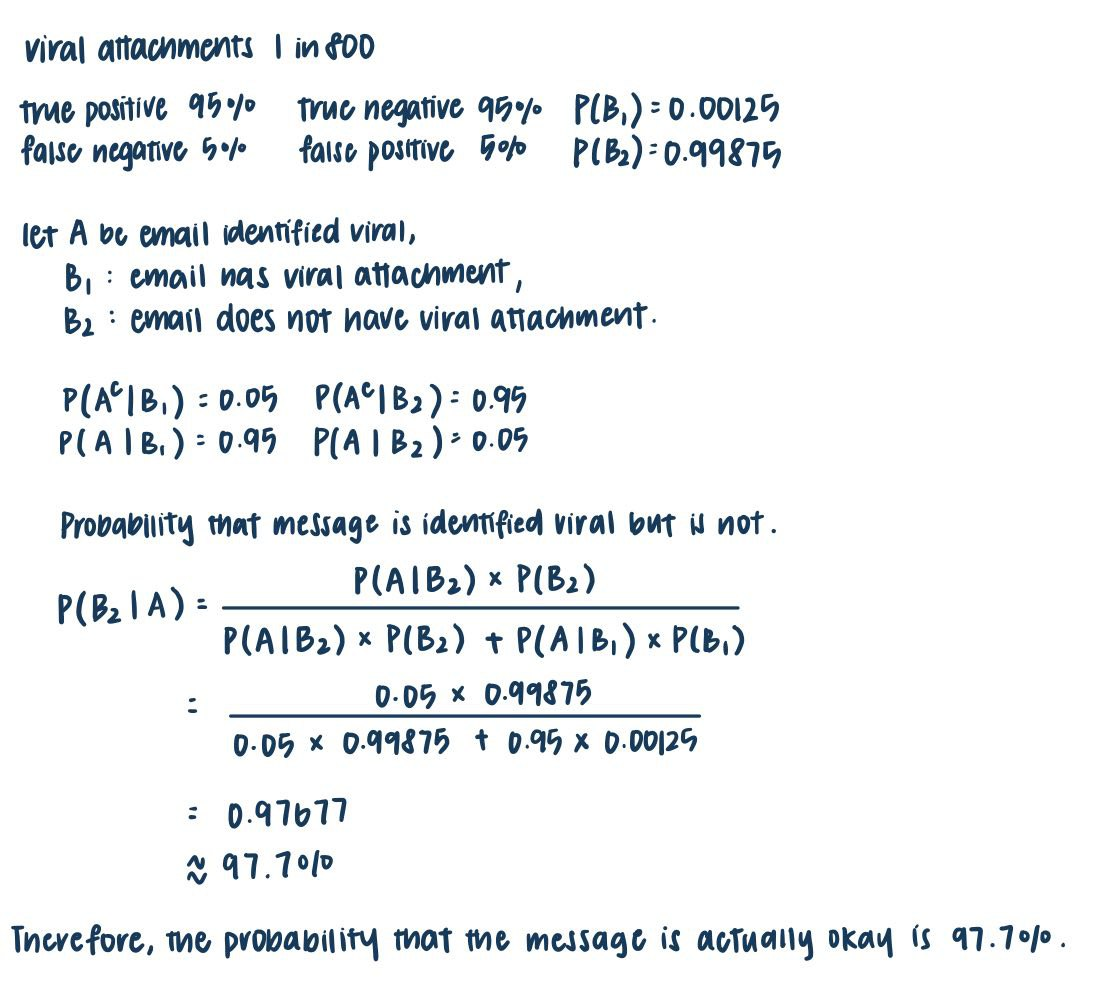 viral attachments 1 in 800
true positive 95% true negative 95% P(B₁) = 0.00125
false negative 5% false positive 5% P(B₂) = 0.99875
let A be email identified viral,
B₁ : email has viral attachment,
B₂ : email does not have viral attachment.
P(Aᶜ|B₁) = 0.05 P(Aᶜ|B₂) = 0.95
P(A|B₁) = 0.95 P(A|B₂) = 0.05
Probability that message is identified viral but is not.
P(A|B₂) × P(B₂)
P(B₂|A) =
P(A|B₂) × P(B₂) + P(A|B₁) × P(B₁)
0.05 × 0.99875
=
0.05 × 0.99875 + 0.95 × 0.00125
= 0.97677
≈ 97.7%
Therefore, the probability that the message is actually okay is 97.7%.